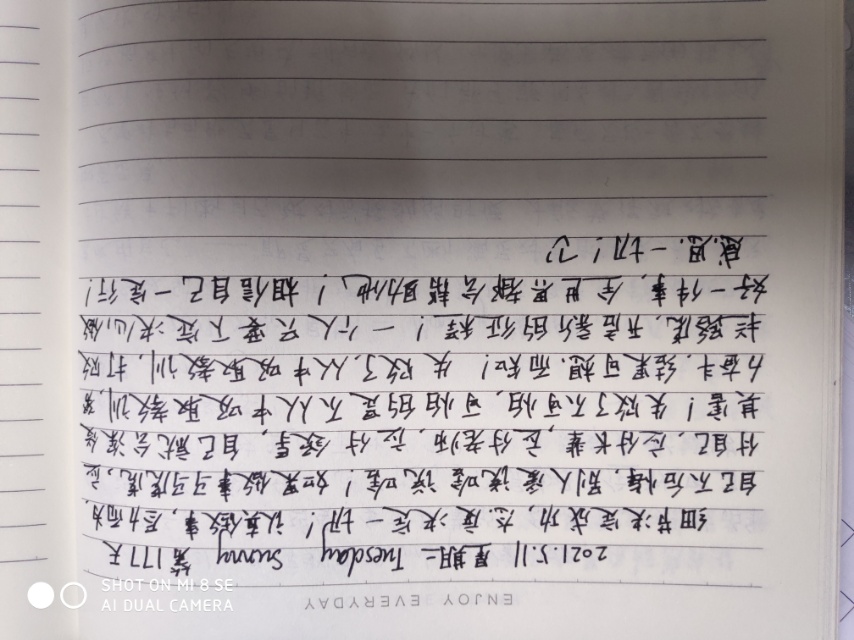 ENJOY EVERYDAY
2021.5.11 星期二 Tuesday Sunny 第177天
细节决定成功,态度决定一切!认真做事,尽力而为,
自己不后悔,别人爱说啥说啥!如果做事马马虎虎,应
付自己,应付长辈,应付老师,应付领导,自己就会深受
其害!失败了不可怕,可怕的是不从中吸取教训,努
力奋斗,结果可想而知!失败了,从中吸取教训,打败
拦路虎,开启新的征程!一个人只要下定决心做
好一件事,全世界都会帮助他!相信自己一定行!
感恩一切!
SHOT ON MI 8 SE
AI DUAL CAMERA